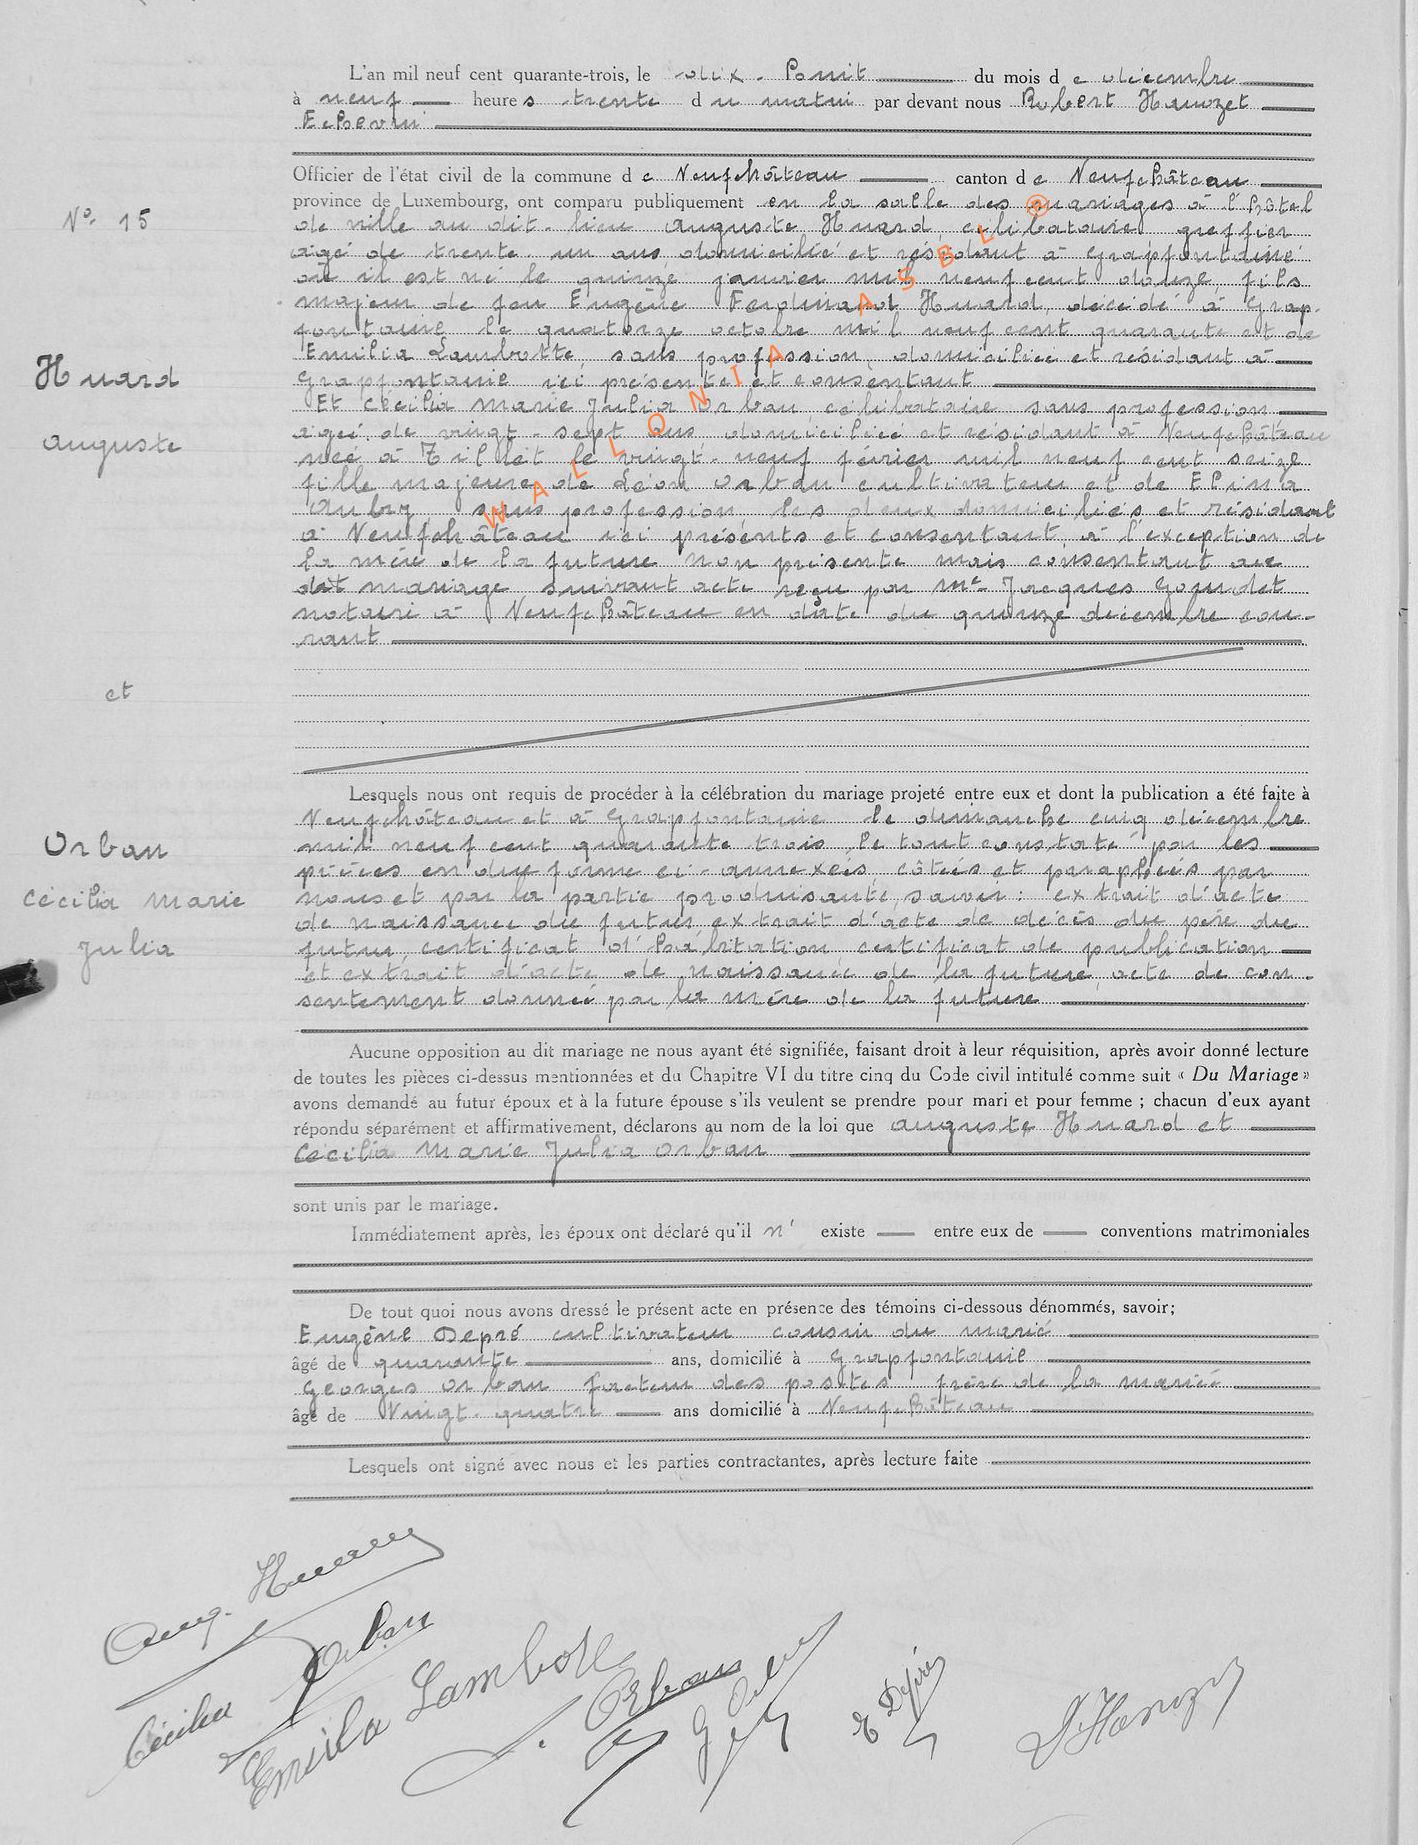 L'an mil neuf cent quarante-trois, le dix-huit du mois de décembre
à neuf heures trente du matin par devant nous Robert Hanozet
Echevin
Officier de l'état civil de la commune de Neufchâteau canton de Neufchâteau
province de Luxembourg, ont comparu publiquement en la salle des mariages à l'hôtel
N° 15
de ville au dit-lieu Auguste Huard, célibataire greffier
agé de trente-un ans, domicilié et résidant à Grapfontaine
où il est né le quinze janvier mil neuf cent douze, fils
majeur de feu Eugène Ferdinand Huard, décédé à Grap-
fontaine le quatorze octobre mil neuf cent quarante et de
Emilia Lambotte, sans profession, domiciliée et résidant à
Huard
Grapfontaine ici présente et consentant
Et Cécilia Marie Julia Orban, célibataire sans profession
Auguste
agée de vingt-sept ans, domiciliée et résidant à Neufchâteau
née à Tillet le vingt-neuf février mil neuf cent seize
fille majeure de Léon Orban cultivateur et de Elina
Aubry sans profession, les deux domiciliés et résidant
à Neufchâteau ici présents et consentant, à l'exception de
la mère de la future non présente mais consentant au
dit mariage suivant acte reçu par Me Jacques Gourdet
notaire à Neufchâteau en date du quinze décembre cou-
rant
WALLONIA ASBL ®
et
Lesquels nous ont requis de procéder à la célébration du mariage projeté entre eux et dont la publication a été faite à
Neufchâteau et à Grapfontaine le dimanche cinq décembre
Orban
mil neuf cent quarante trois, le tout constaté par les
pièces en due forme ci-annexées, côtées et paraphées par
Cécilia Marie
nous et par la partie produisante, savoir : extrait d'acte
de naissance du futur, extrait d'acte de décès du père du
Julia
futur, certificat d'habitation certificat de publication
et extrait d'acte de naissance de la future, acte de con-
sentement donné par la mère de la future
Aucune opposition au dit mariage ne nous ayant été signifiée, faisant droit à leur réquisition, après avoir donné lecture
de toutes les pièces ci-dessus mentionnées et du Chapitre VI du titre cinq du Code civil intitulé comme suit « Du Mariage »
avons demandé au futur époux et à la future épouse s'ils veulent se prendre pour mari et pour femme ; chacun d'eux ayant
répondu séparément et affirmativement, déclarons au nom de la loi que Auguste Huard et
Cécilia Marie Julia Orban
sont unis par le mariage.
Immédiatement après, les époux ont déclaré qu'il n' existe entre eux de conventions matrimoniales
De tout quoi nous avons dressé le présent acte en présence des témoins ci-dessous dénommés, savoir;
Eugène Depré cultivateur cousin du marié
âgé de quarante ans, domicilié à Grapfontaine
Georges Orban facteur des postes frère de la mariée
âgé de vingt-quatre ans domicilié à Neufchâteau
Lesquels ont signé avec nous et les parties contractantes, après lecture faite
Aug. Huard
Cécilia Orban
Emilia Lambotte
Orban
E Depré
R Hanozet